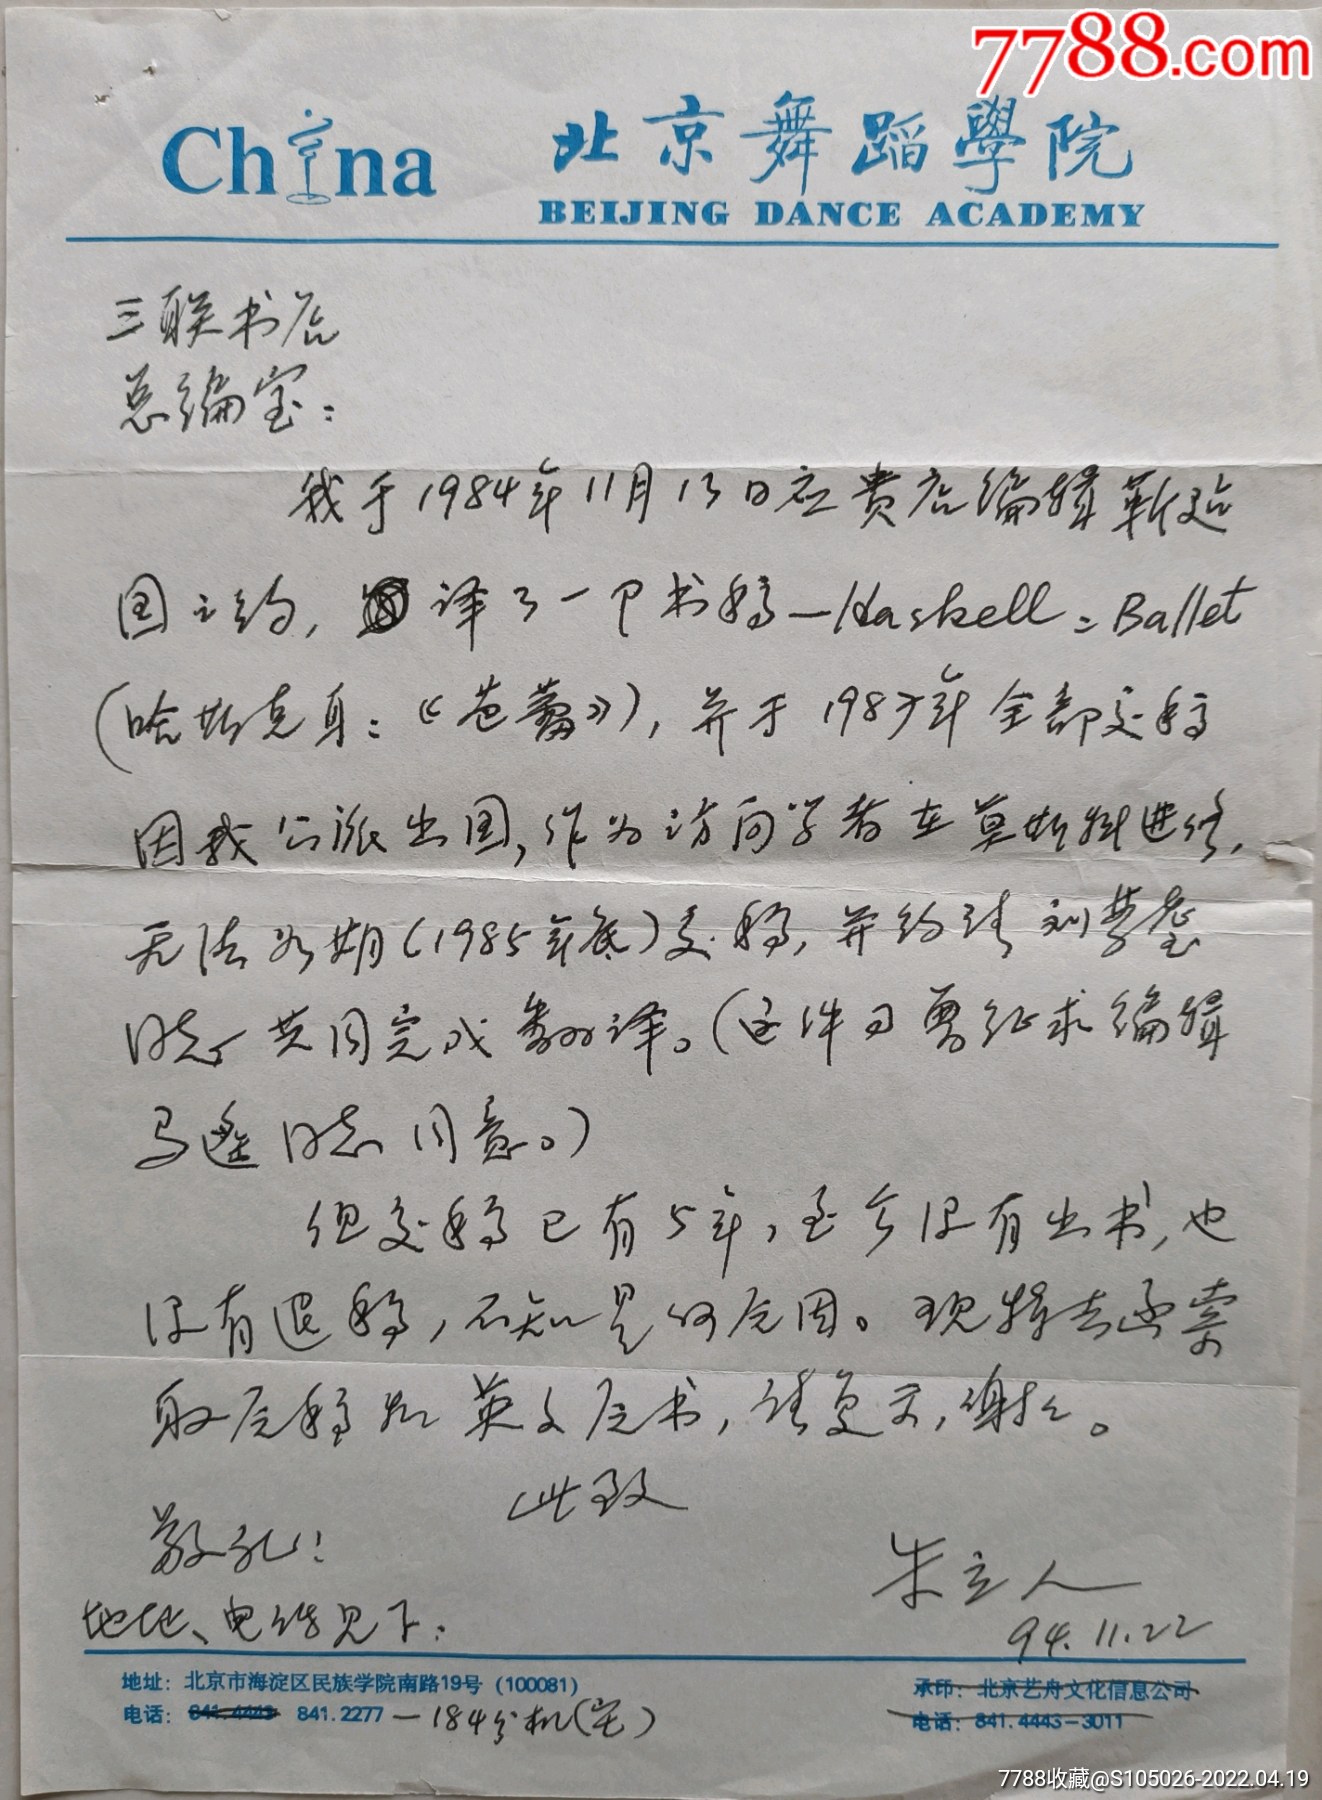 7788.com
China
北京舞蹈學院
BEIJING DANCE ACADEMY
三联书店
总编室：
我于1984年11月13日应贵店编辑靳
国之约，译了一个书稿—Haskell：Ballet
（哈斯克耳：《芭蕾》），并于1987年全部交稿
因我公派出国，作为访问学者在莫斯科进修，
无法如期（1985年底）交稿，并约请刘梦耋
同志共同完成翻译。（这件事曾征求编辑
马遥同志同意。）
但交稿已有5年，至今没有出书，也
没有退稿，不知是何原因。现特去函索
取原稿和英文原书，请复示，谢谢。
此致
敬礼！
朱立人
94.11.22
地址、电话见下：
地址：北京市海淀区民族学院南路19号（100081）
电话：841.4443 841.2277—184分机（宅）
承印：北京艺舟文化信息公司
电话：841.4443-3011
7788收藏@S105026-2022.04.19